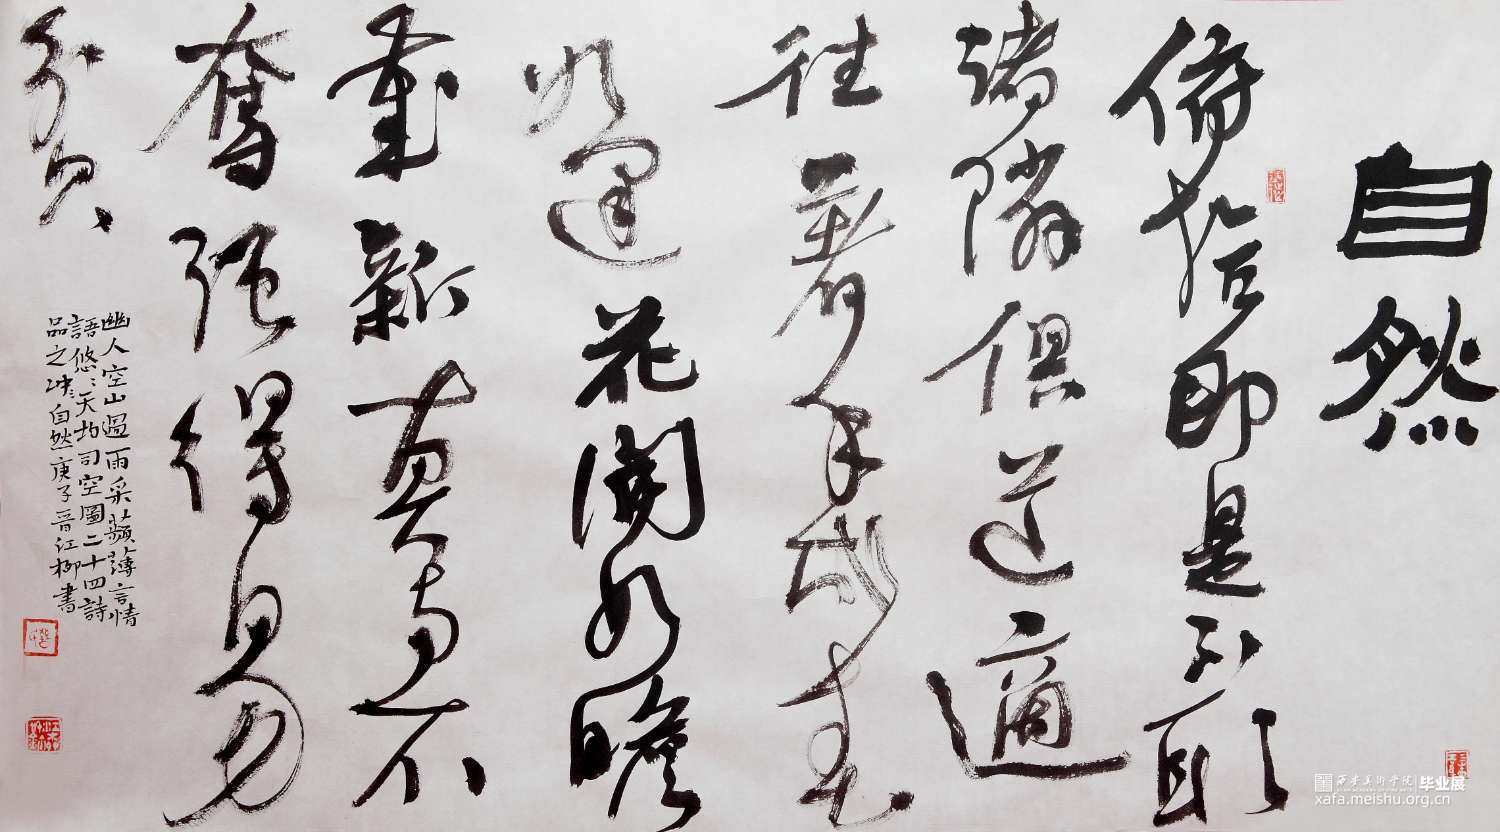 自然
俯拾即是不取
諸隣俱道適
往著手成春
如逢花開如瞻
歲新真與不
奪强得易
貧
幽人空山過雨采蘋薄言情
語悠〻天均司空圖二十四詩
品之自然庚子晉江柳書
西安美術學院 毕业展
xafa.meishu.org.cn